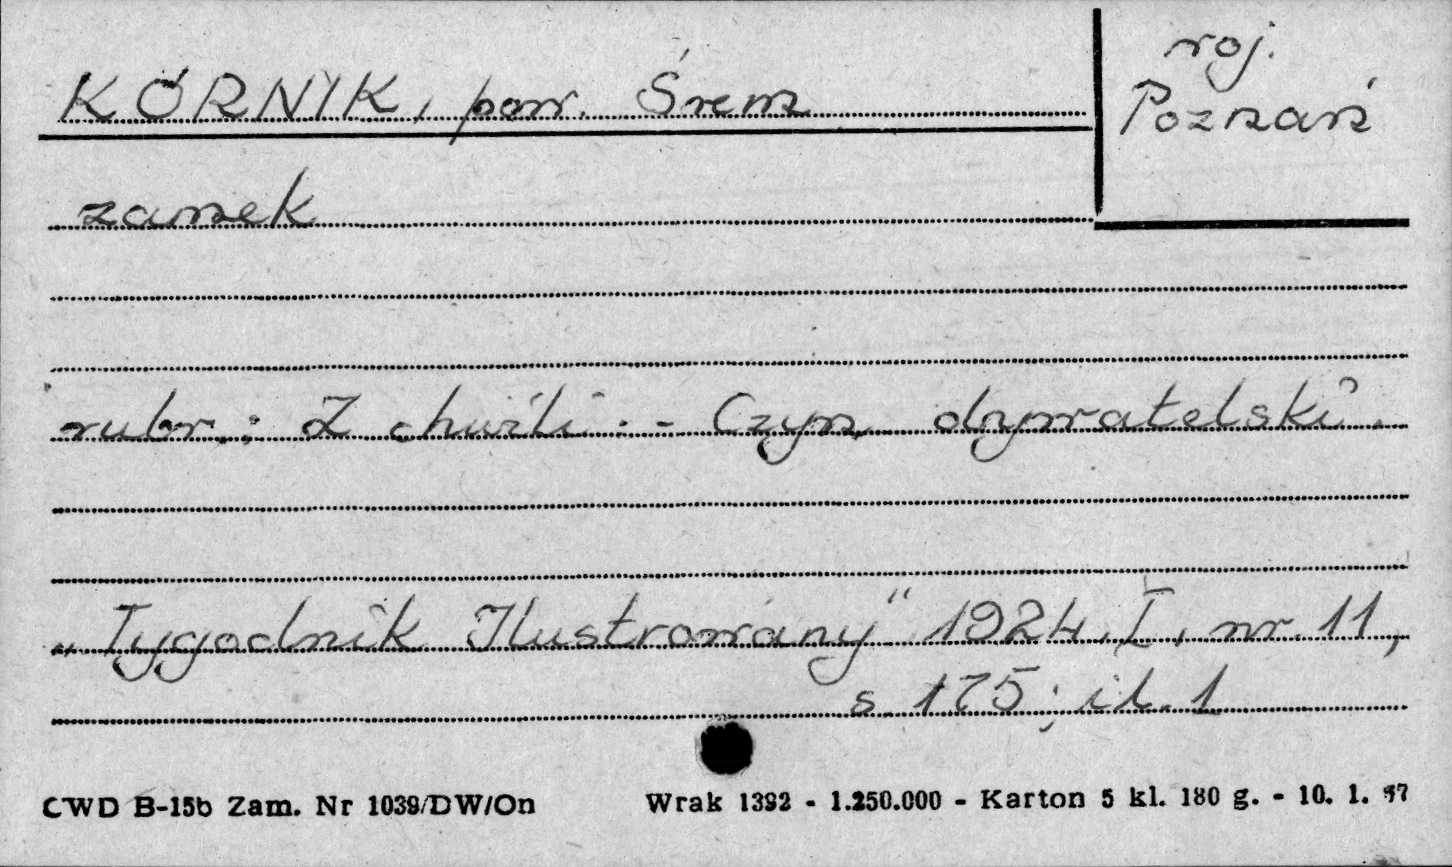 KÓRNIK, pow. Śrem
woj.
Poznań
zamek
rubr.: Z chwili. - Czyn obywatelski.
„Tygodnik Ilustrowany" 1924, I, nr. 11,
s 175; il. 1
CWD B-15b Zam. Nr 1039/DW/On
Wrak 1392 - 1.250.000 - Karton 5 kl. 180 g. - 10. 1. 57